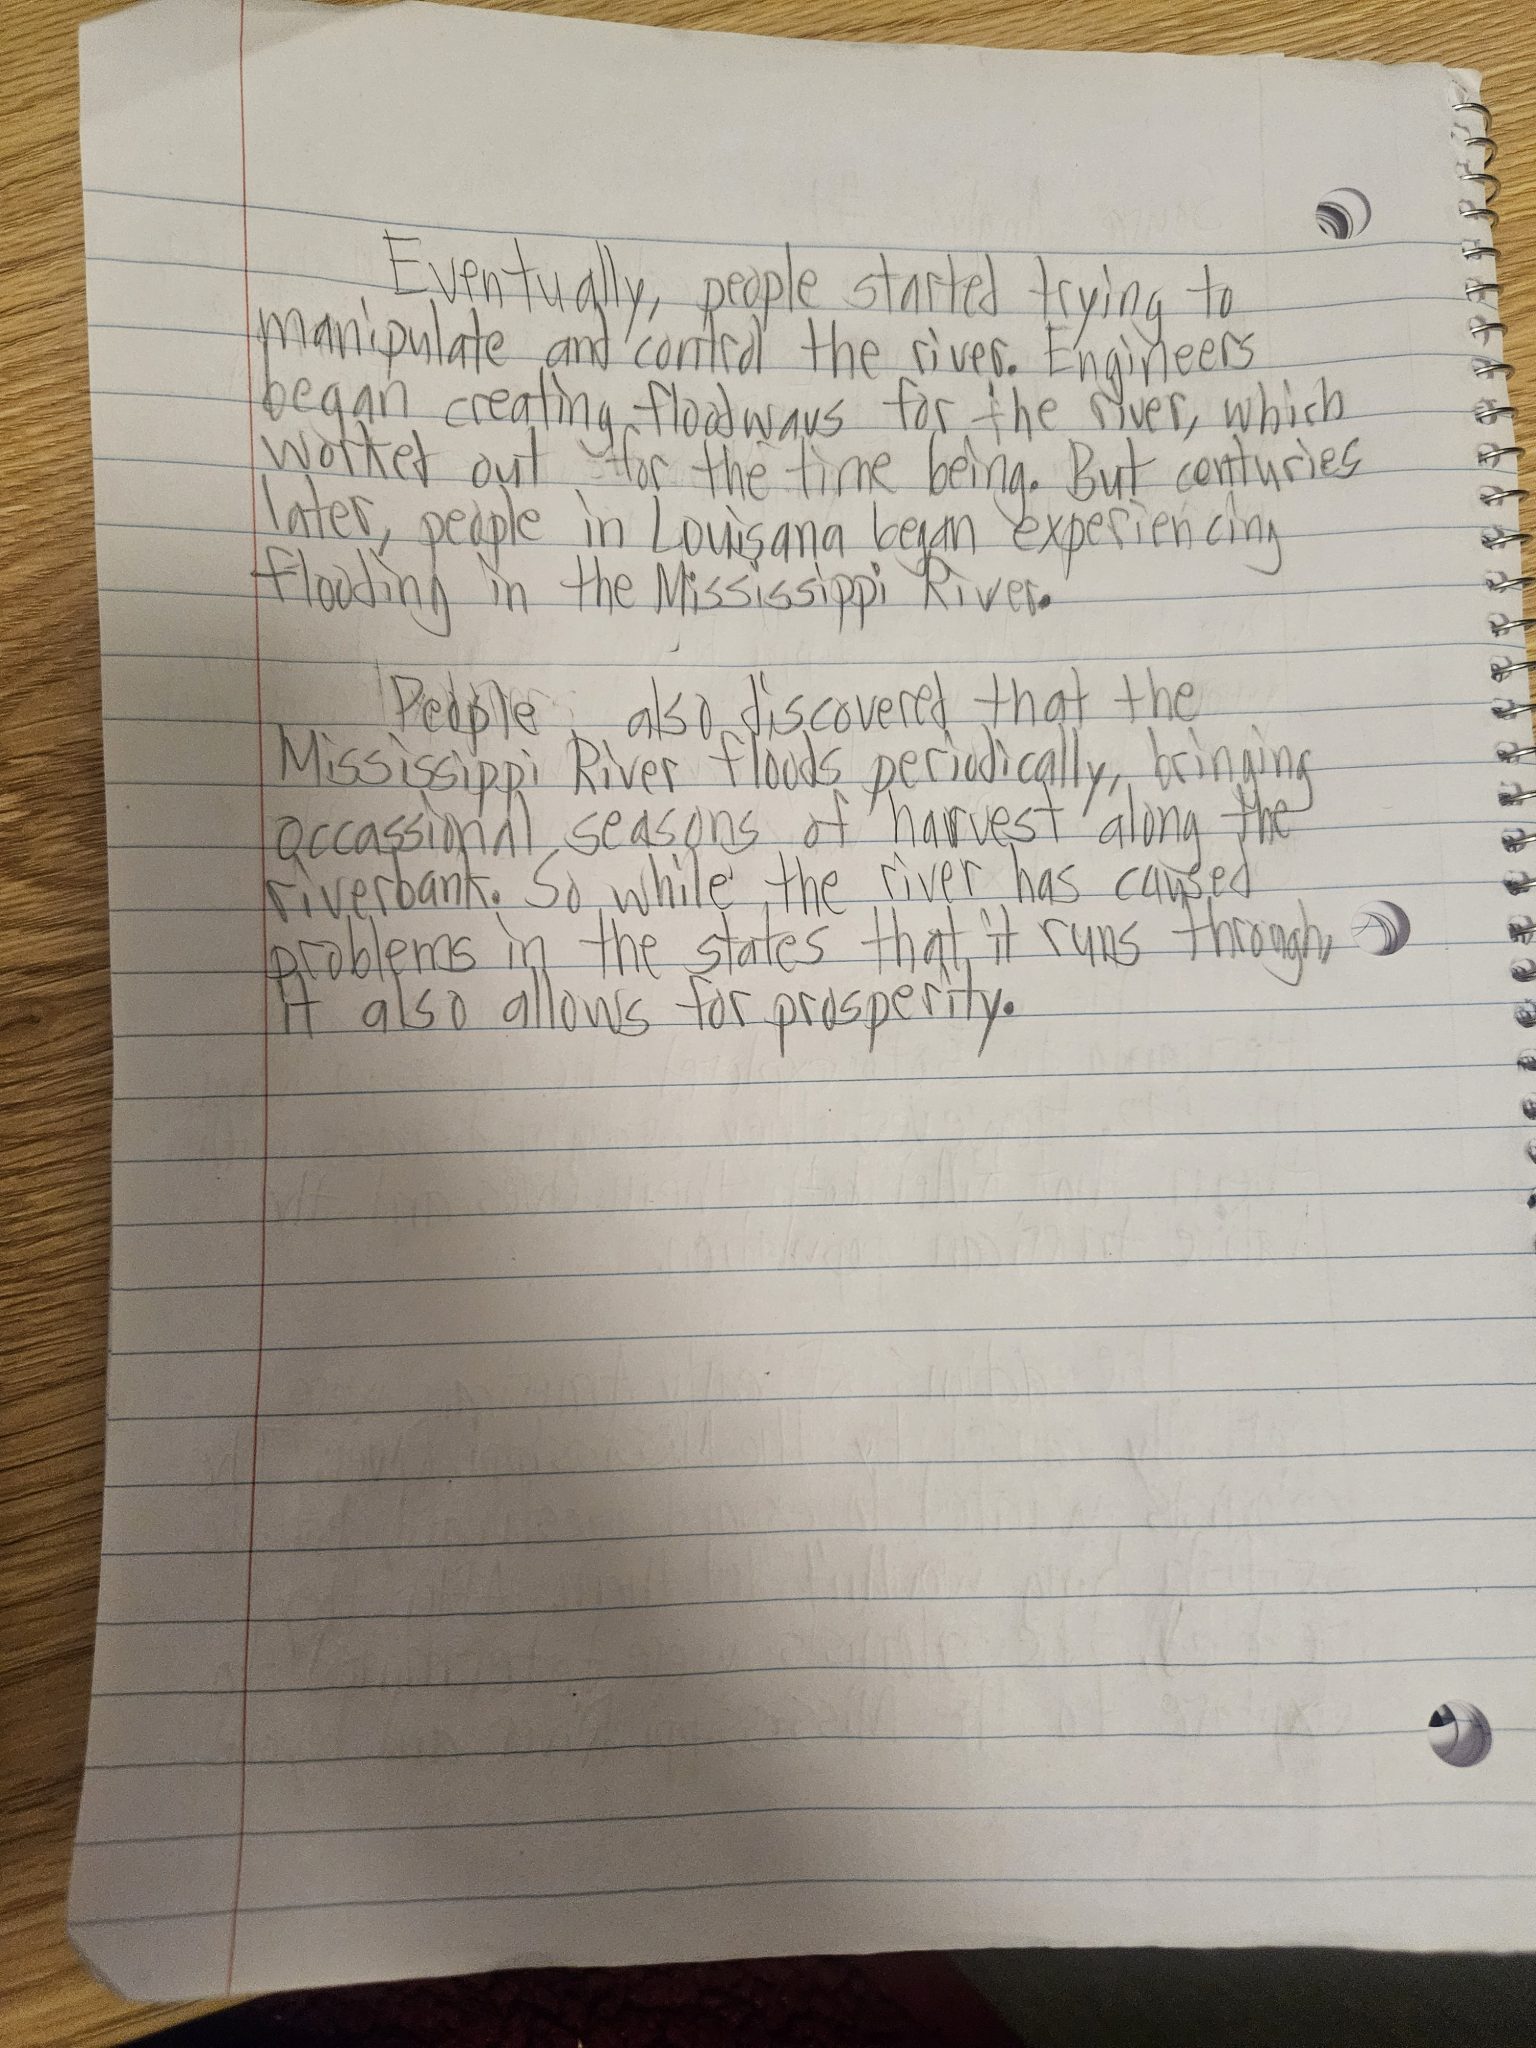 Eventually, people started trying to
manipulate and control the river. Engineers
began creating floodways for the river, which
worked out for the time being. But centuries
later, people in Louisana began experiencing
flooding in the Mississippi River.
People also discovered that the
Mississippi River floods periodically, bringing
occassional seasons of harvest along the
riverbank. So while the river has caused
problems in the states that it runs through,
it also allows for prosperity.